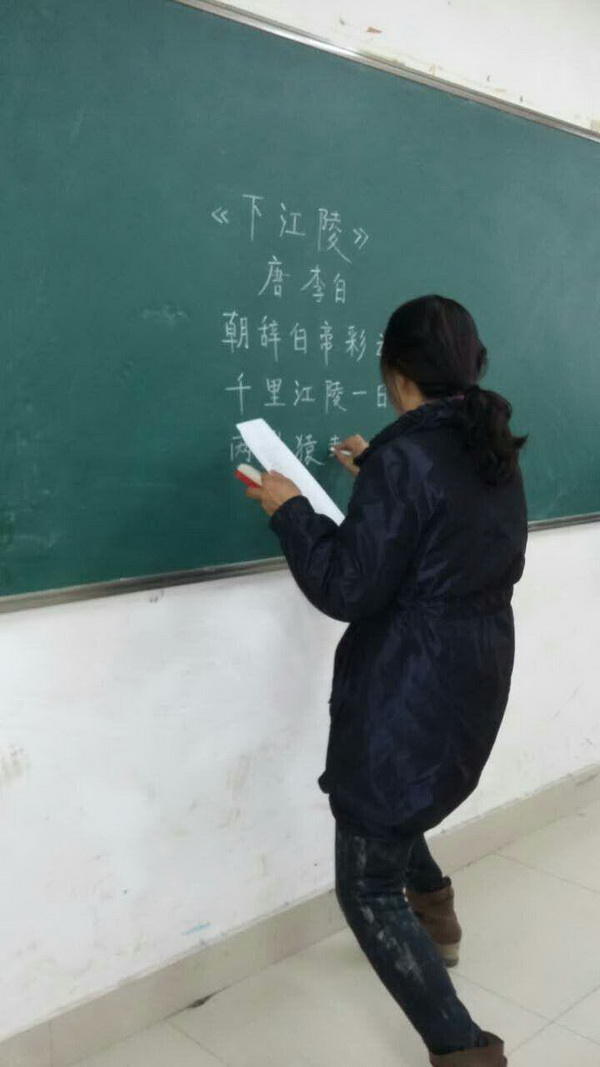 《下江陵》
唐 李白
朝辞白帝彩
千里江陵一日
两 猿